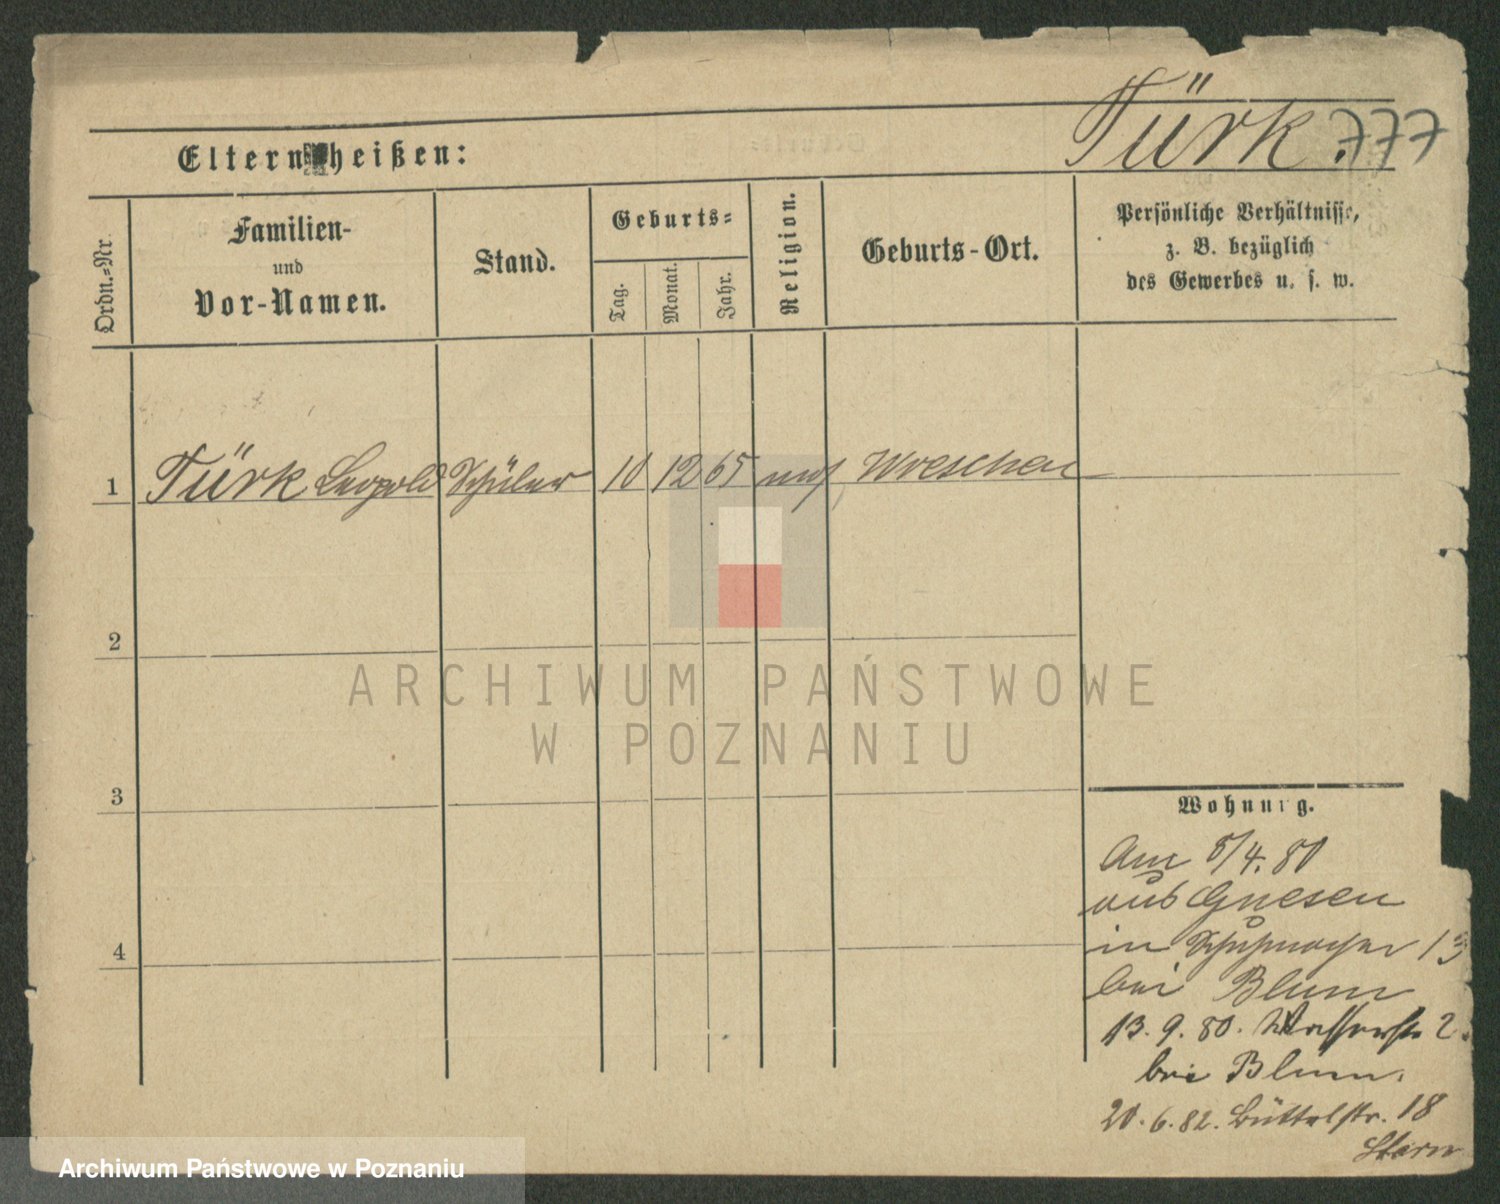 Türk. 777
Eltern heißen:
Ordn.=Nr.
Familien-
und
Vor-Namen.
Stand.
Geburts=
Tag.
Monat.
Jahr.
Religion.
Geburts-Ort.
Persönliche Verhältnisse,
z. B. bezüglich
des Gewerbes u. s. w.
1 Türk Leopold Schüler 10 12 65 mos Wreschen
2
3
4
Wohnung.
Am 8/4. 80
aus Gnesen
in Schuhmacher 13
bei Blum
13. 9. 80. Wasserstr. 2
bei Blum.
20. 6. 82. Büttelstr. 18
Stern
ARCHIWUM PAŃSTWOWE
W POZNANIU
Archiwum Państwowe w Poznaniu